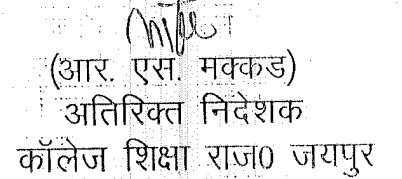 (आर. एस. मक्कड)
अतिरिक्त निदेशक
कॉलेज शिक्षा राज0 जयपुर